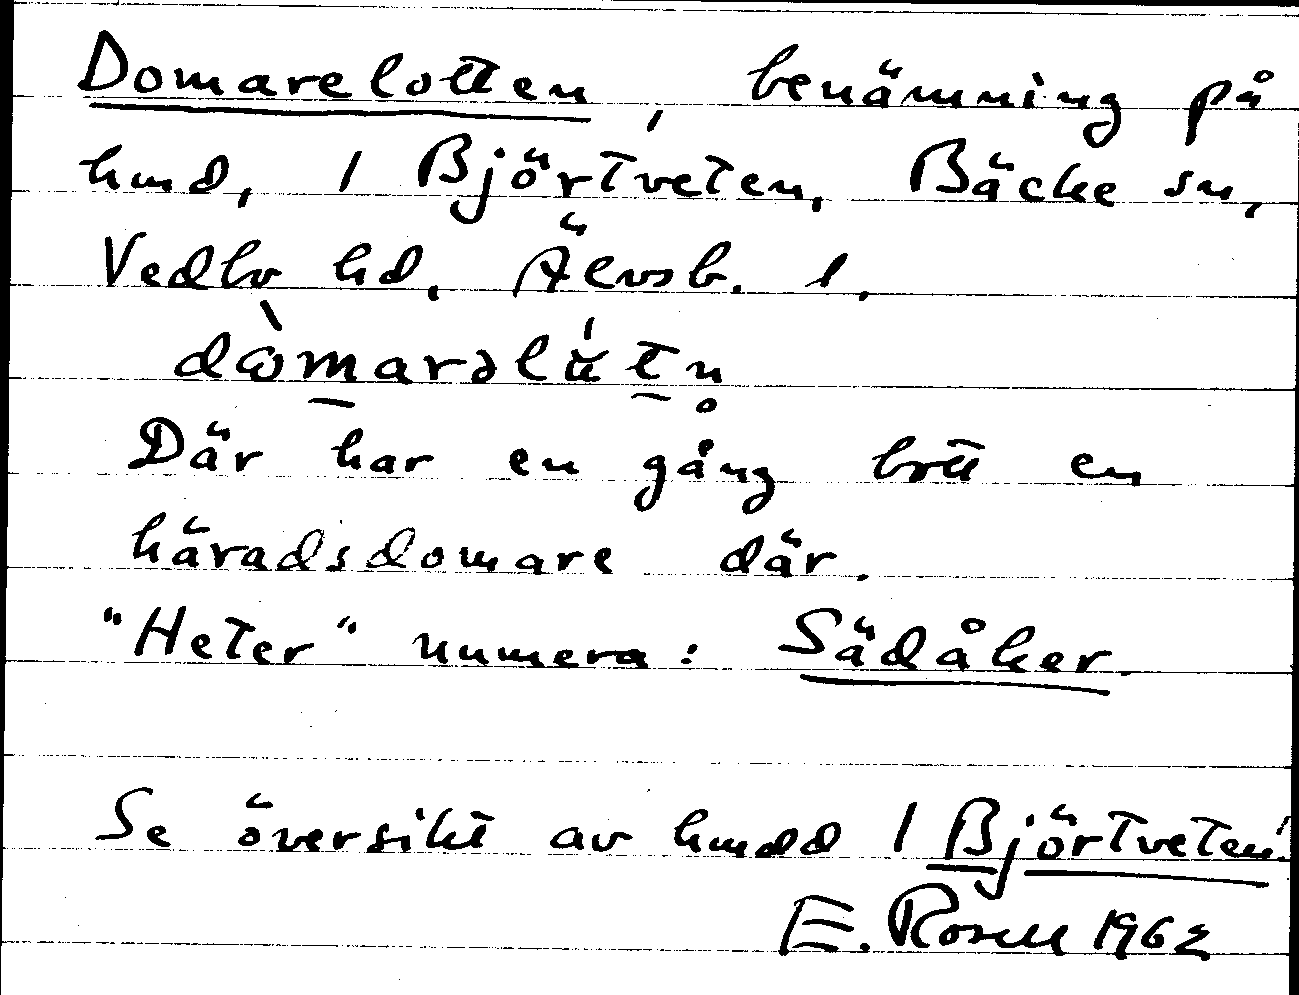 Domarelotten, benämning på
hmd, 1 Björtveten, Bäcke sn,
Vedbo hd. Älvsb. l.
Där har en gång bott en
häradsdomare där.
"Heter" numera: Sädåker.
Se översikt av hmdd 1 Björtveten!
E. Rosell 1962